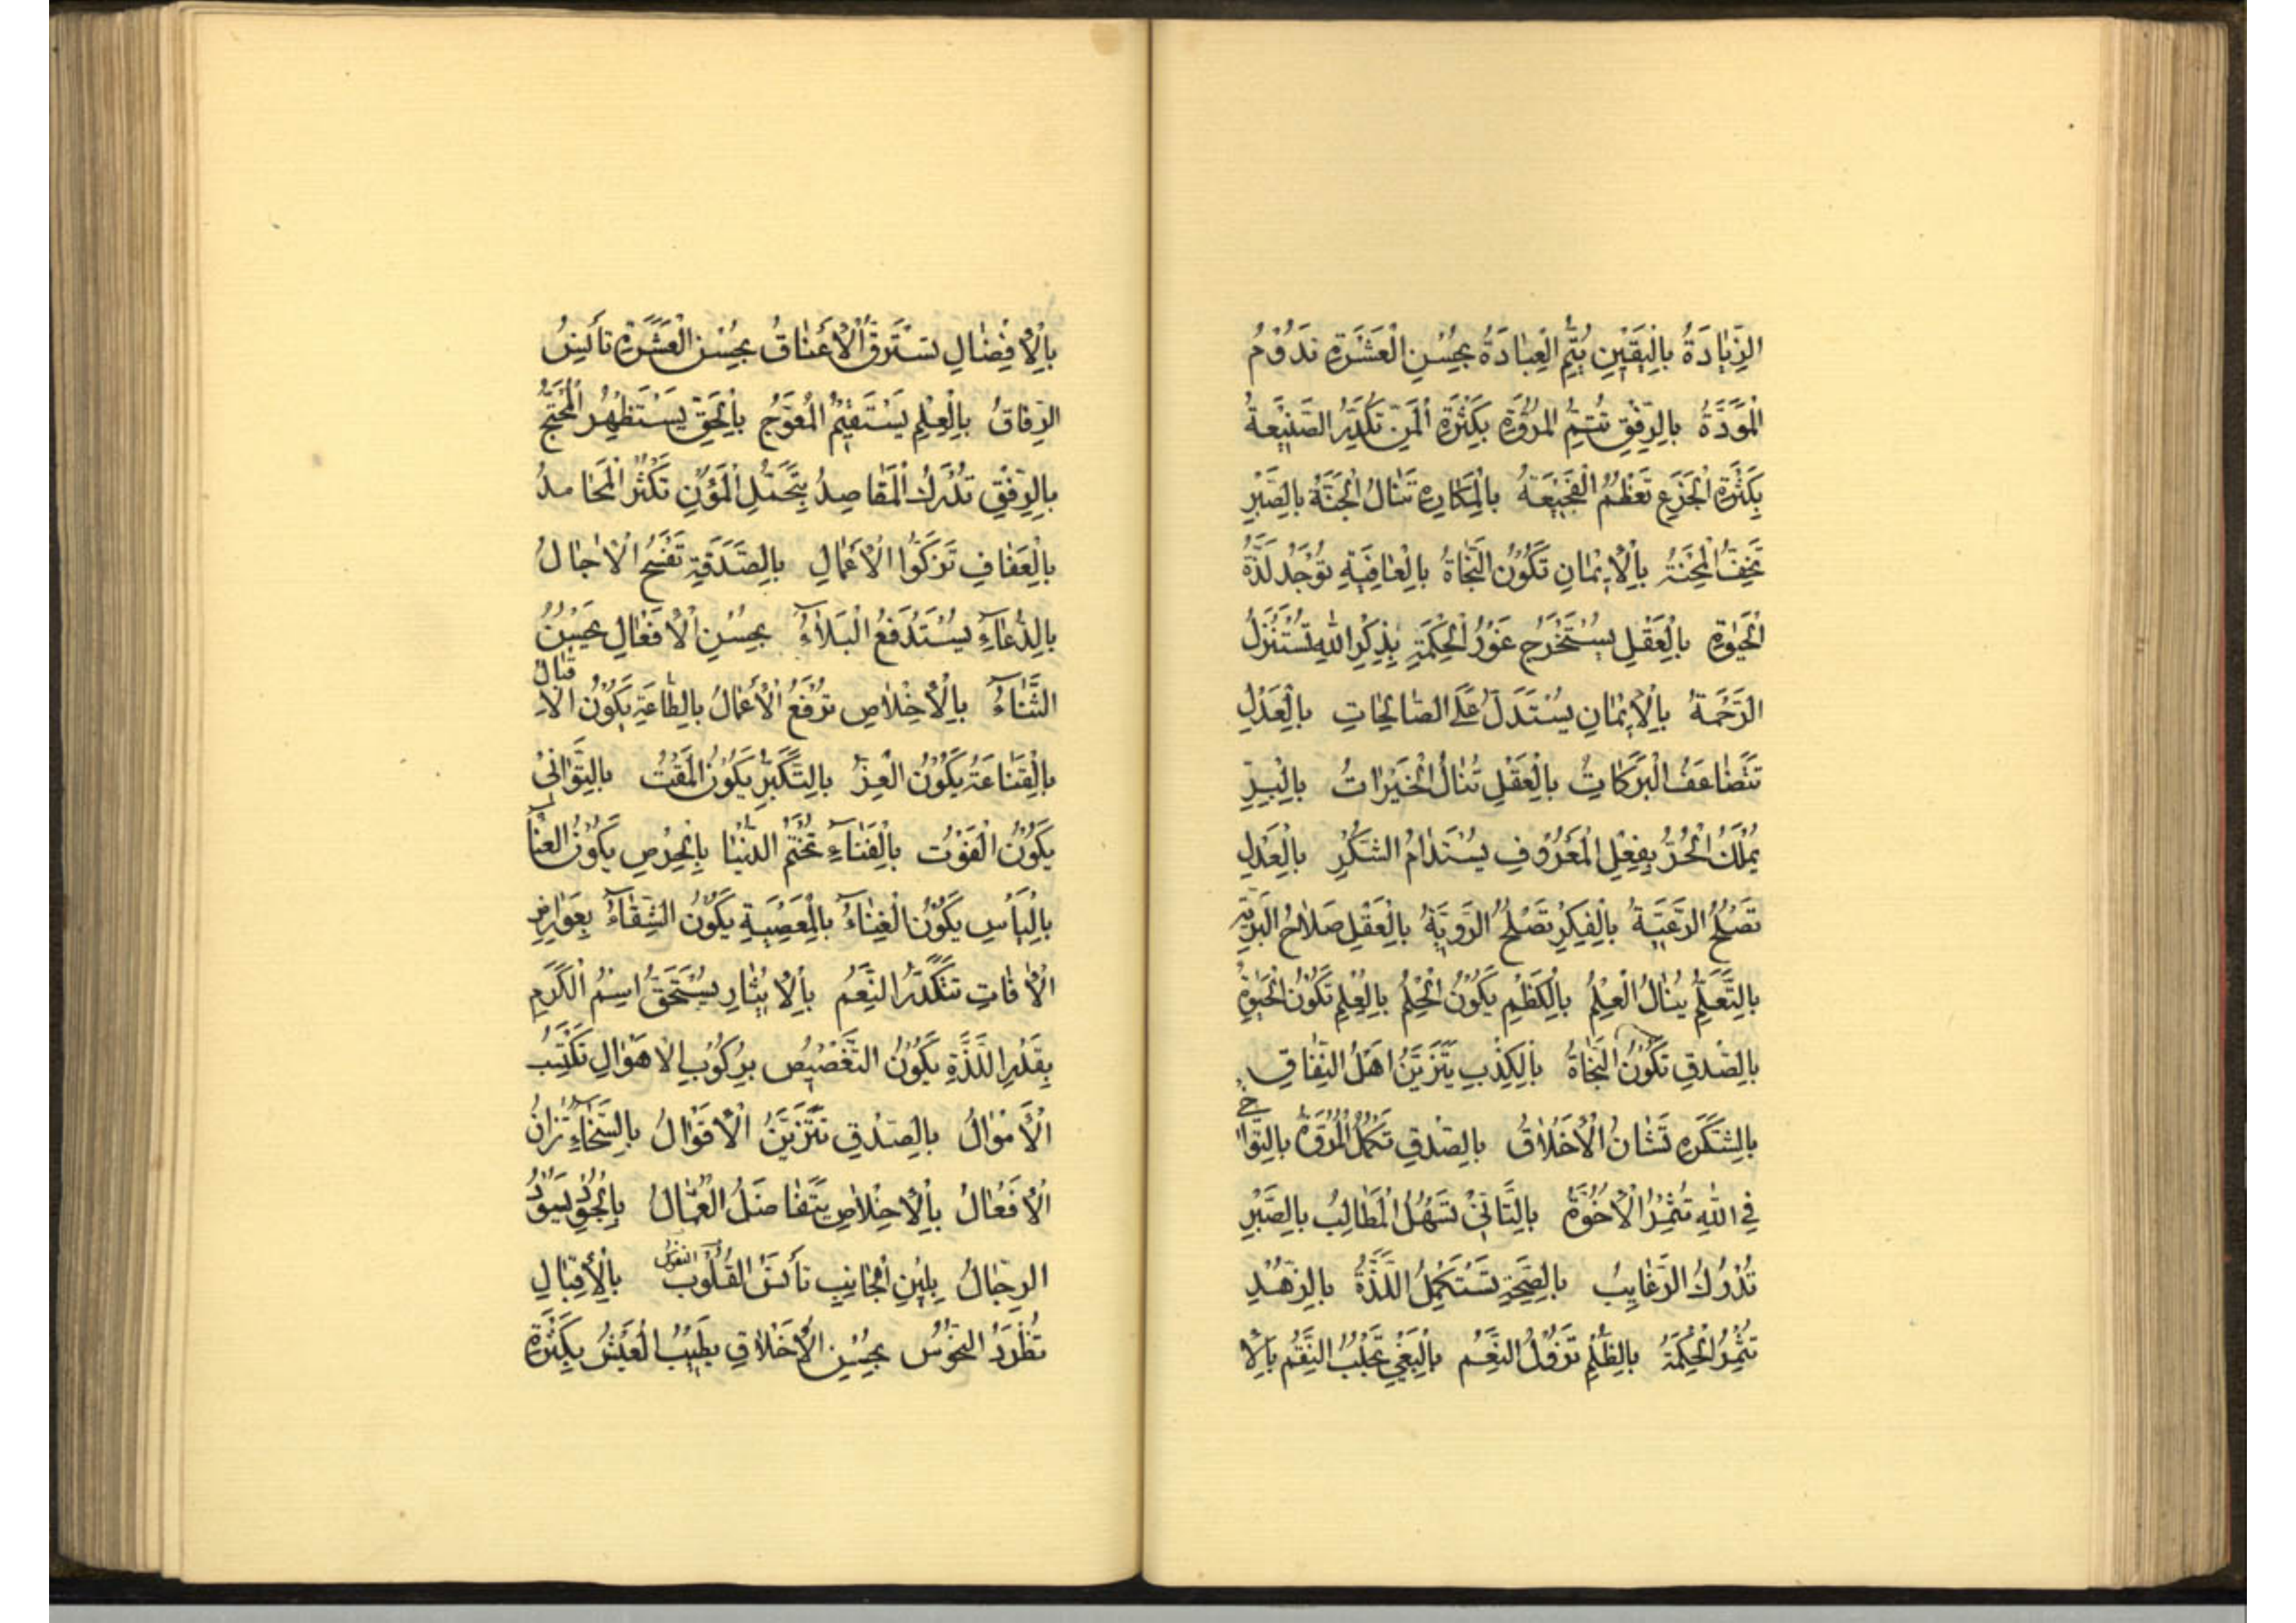 الزِّيادَةُ بِالْيَقينِ يُتِمُّ الْعِبادَةُ بِحُسْنِ الْعِشْرَةِ تَدُوْمُ
الْمَوَدَّةُ بِالرِّفْقِ تُتِمُّ الْمُرُوَّةُ بِكَثْرَةِ الْمَنِّ تُكَدِّرُ الصَّنيعَةُ
بِكَثْرَةِ الْجَزَعِ تَعْظُمُ الْفَجيعَةُ بِالْمَكارِهِ تَنالُ الْجَنَّةُ بِالصَّبْرِ
تَخِفُّ الْمِحْنَةُ بِالْاِيْمانِ تَكُوْنُ النَّجاةُ بِالْعافِيَةِ تُوْجَدُ لَذَّةُ
الْحَيوةِ بِالْعَقْلِ يُسْتَخْرَجُ غَوْرُ الْحِكْمَةِ بِذِكْرِ اللهِ تُسْتَنْزَلُ
الرَّحْمَةُ بِالْاِيْمانِ يُسْتَدَلُّ عَلَى الصّالِحاتِ بِالْعَدْلِ
تَتَضاعَفُ الْبَرَكاتُ بِالْعَقْلِ تُنالُ الْخَيْراتُ بِالْبِرِّ
يُمْلَكُ الْحُرُّ بِفِعْلِ الْمَعْرُوْفِ يُسْتَدامُ الشُّكْرُ بِالْعَدْلِ
تَصْلُحُ الرَّعِيَّةُ بِالْفِكْرِ تَصْلُحُ الرَّوِيَّةُ بِالْعَقْلِ صَلاحُ الْبَرِيَّةِ
بِالتَّعَلُّمِ يُنالُ الْعِلْمُ بِالْكَظْمِ يَكُوْنُ الْحِلْمُ بِالْعِلْمِ تَكُوْنُ الْحَيوةُ
بِالصِّدْقِ تَكُوْنُ النَّجاةُ بِالْكِذْبِ يَتَزَيَّنُ اَهْلُ النِّفاقِ
بِالشَّكَرِهِ تَشانُ الْاَخْلاقُ بِالصِّدْقِ تَكْمُلُ الْمُرُوَّةُ بِالتَّوا خى
فِى اللهِ تُثْمِرُ الْاُخُوَّةُ بِالتَّاَنّى تَسْهُلُ الْمَطالِبُ بِالصَّبْرِ
تُدْرَكُ الرَّغايِبُ بِالصِّحَّةِ تُسْتَكْمَلُ اللَّذَّةُ بِالزُّهْدِ
تُثْمِرُ الْحِكْمَةُ بِالظُّلْمِ تَزُوْلُ النِّعَمُ بِالْبَغْىِ تُجْلَبُ النِّقَمُ بِالْا
بِالْاِفْضالِ تُسْتَرَقُّ الْاَعْناقُ بِحُسْنِ الْعِشْرَةِ تَأْنَسُ
الرِّفاقُ بِالْعِلْمِ يَسْتَقيمُ الْمُعْوَجُّ بِالْحَقِّ يَسْتَظْهِرُ الْمُحْتَجُّ
بِالرِّفْقِ تُدْرَكُ الْمَقاصِدُ بِتَحَمُّلِ الْمُؤَنِ تَكْثُرُ الْمَحامِدُ
بِالْعَفافِ تَزْكُوا الْاَعْمالِ بِالصَّدَقَةِ تَفْسَحُ الْاٰجالُ
بِالدُّعاءِ يُسْتَدْفَعُ الْبَلاءُ بِحُسْنِ الْاَفْعالِ يَحْسُنُ
الثَّناءُ بِالْاِخْلاصِ تُرْفَعُ الْاَعْمالُ بِالطّاعَةِ يَكُوْنُ الْاِقْبالُ
بِالْقِناعَةِ يَكُوْنُ الْعِزُّ بِالتَّكَبُّرِ يَكُوْنُ الْمَقْتُ بِالتَّوانى
يَكُوْنُ الْفَوْتُ بِالْفَناءِ تُخْتَمُ الدُّنْيا بِالْحِرْصِ يَكُوْنُ الْعَناءُ
بِالْيَأْسِ يَكُوْنُ الْغِناءُ بِالْمَعْصِيَةِ يَكُوْنُ الشَّقاءُ بِعَوارِضِ
الْاٰفاتِ تَتَكَدَّرُ النِّعَمُ بِالْاِيْثارِ يُسْتَحَقُّ اسْمُ الْكَرَمِ
بِقَدْرِ اللَّذَّةِ يَكُوْنُ التَّغْصيصُ بِرُكُوْبِ الْاَهْوالِ تُكْتَسَبُ
الْاَمْوالُ بِالصِّدْقِ تَتَزَيَّنُ الْاَقْوالُ بِالسَّخاءِ تُزانُ
الْاَفْعالُ بِالْاِخْلاصِ يَتَفاضَلُ الْعُمّالُ بِالْجُوْدِ يَسُوْدُ
الرِّجالُ بِلينِ الْجانِبِ تَأْنَسُ الْقُلُوْبُ النفوس بِالْاِقْبالِ
تُطْرَدُ النُّحُوْسُ بِحُسْنِ الْاَخْلاقِ يَطيبُ الْعَيْشُ بِكَثْرَةِ